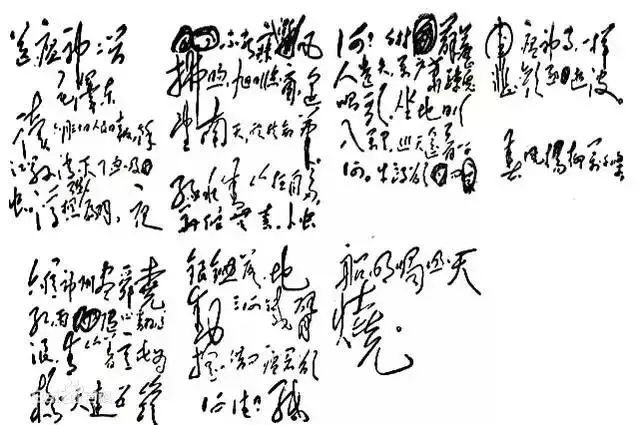 送瘟神二首
毛泽东
读六月三十日人民日报,余
江县消灭了血吸
虫,浮想联翩,夜
不能寐,微风
拂晓,旭日临窗,遥
望南天,欣然命笔。
绿水青山枉自多,
华佗无奈小虫
何!千村薜荔
人遗矢,万户萧疏鬼
唱歌。坐地日行
八万里,巡天遥看一千
河。牛郎欲问
瘟神事,一样
悲欢逐逝波。
春风杨柳万千条
六亿神州尽舜尧
红雨随心翻作
浪,青山着意化为
桥 天连五岭
银锄落,地
动三河铁臂
摇。借问瘟君欲
何往?纸
船明烛照天
烧。